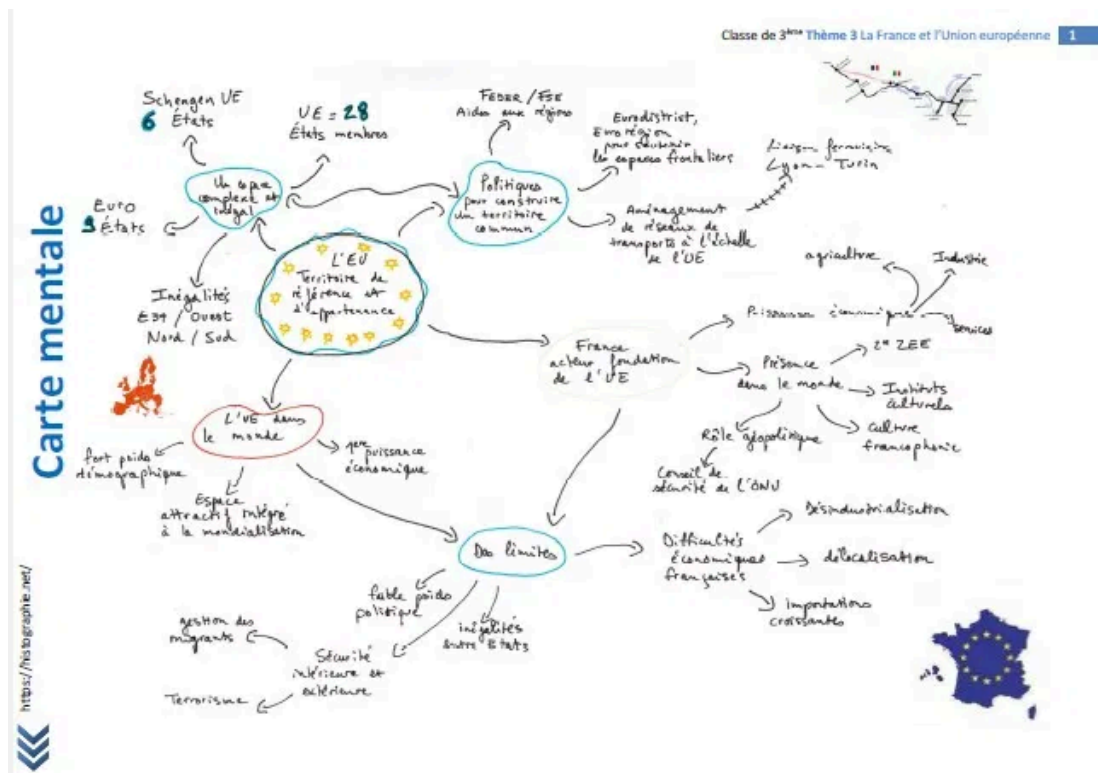 Classe de 3ème Thème 3 La France et l'Union européenne 1
Carte mentale
https://histographie.net/
Schengen UE
6 États
UE = 28
États membres
Un espace
complexe et
inégal
Euro
9 États
Inégalités
Est / Ouest
Nord / Sud
FEDER / FSE
Aides aux régions
Politiques
pour construire
un territoire
commun
Eurodistrict,
Eurorégion
pour soutenir
les espaces frontaliers
Liaison ferroviaire
Lyon - Turin
Aménagement
de réseaux de
transports à l'échelle
de l'UE
L'EU
Territoire de
référence et
d'appartenance
France
acteur fondation
de l'UE
Puissance économique
agriculture
Industrie
services
Présence
dans le monde
2e ZEE
Instituts
culturels
culture
francophonie
Rôle géopolitique
Conseil de
sécurité de l'ONU
L'UE dans
le monde
fort poids
démographique
1ère
puissance
économique
Espace
attractif intégré
à la mondialisation
Des limites
faible poids
politique
inégalités
entre États
Sécurité
intérieure et
extérieure
gestion des
migrants
Terrorisme
Difficultés
économiques
françaises
Désindustrialisation
délocalisation
importations
croissantes